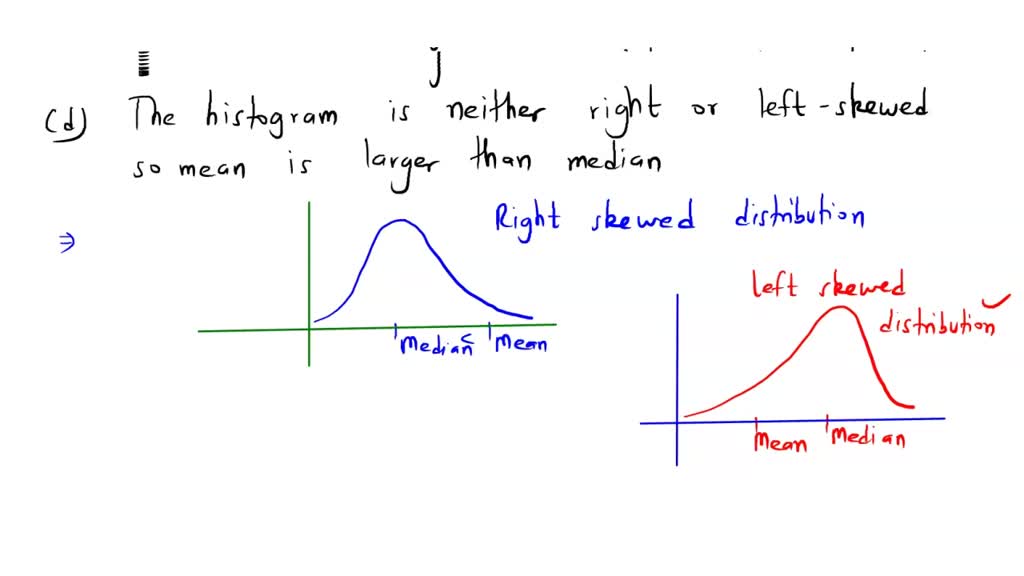 (d) The histogram is neither right or left-skewed
so mean is larger than median
⇒
Right skewed distribution
Median < Mean
left skewed
distribution ✓
Mean Median